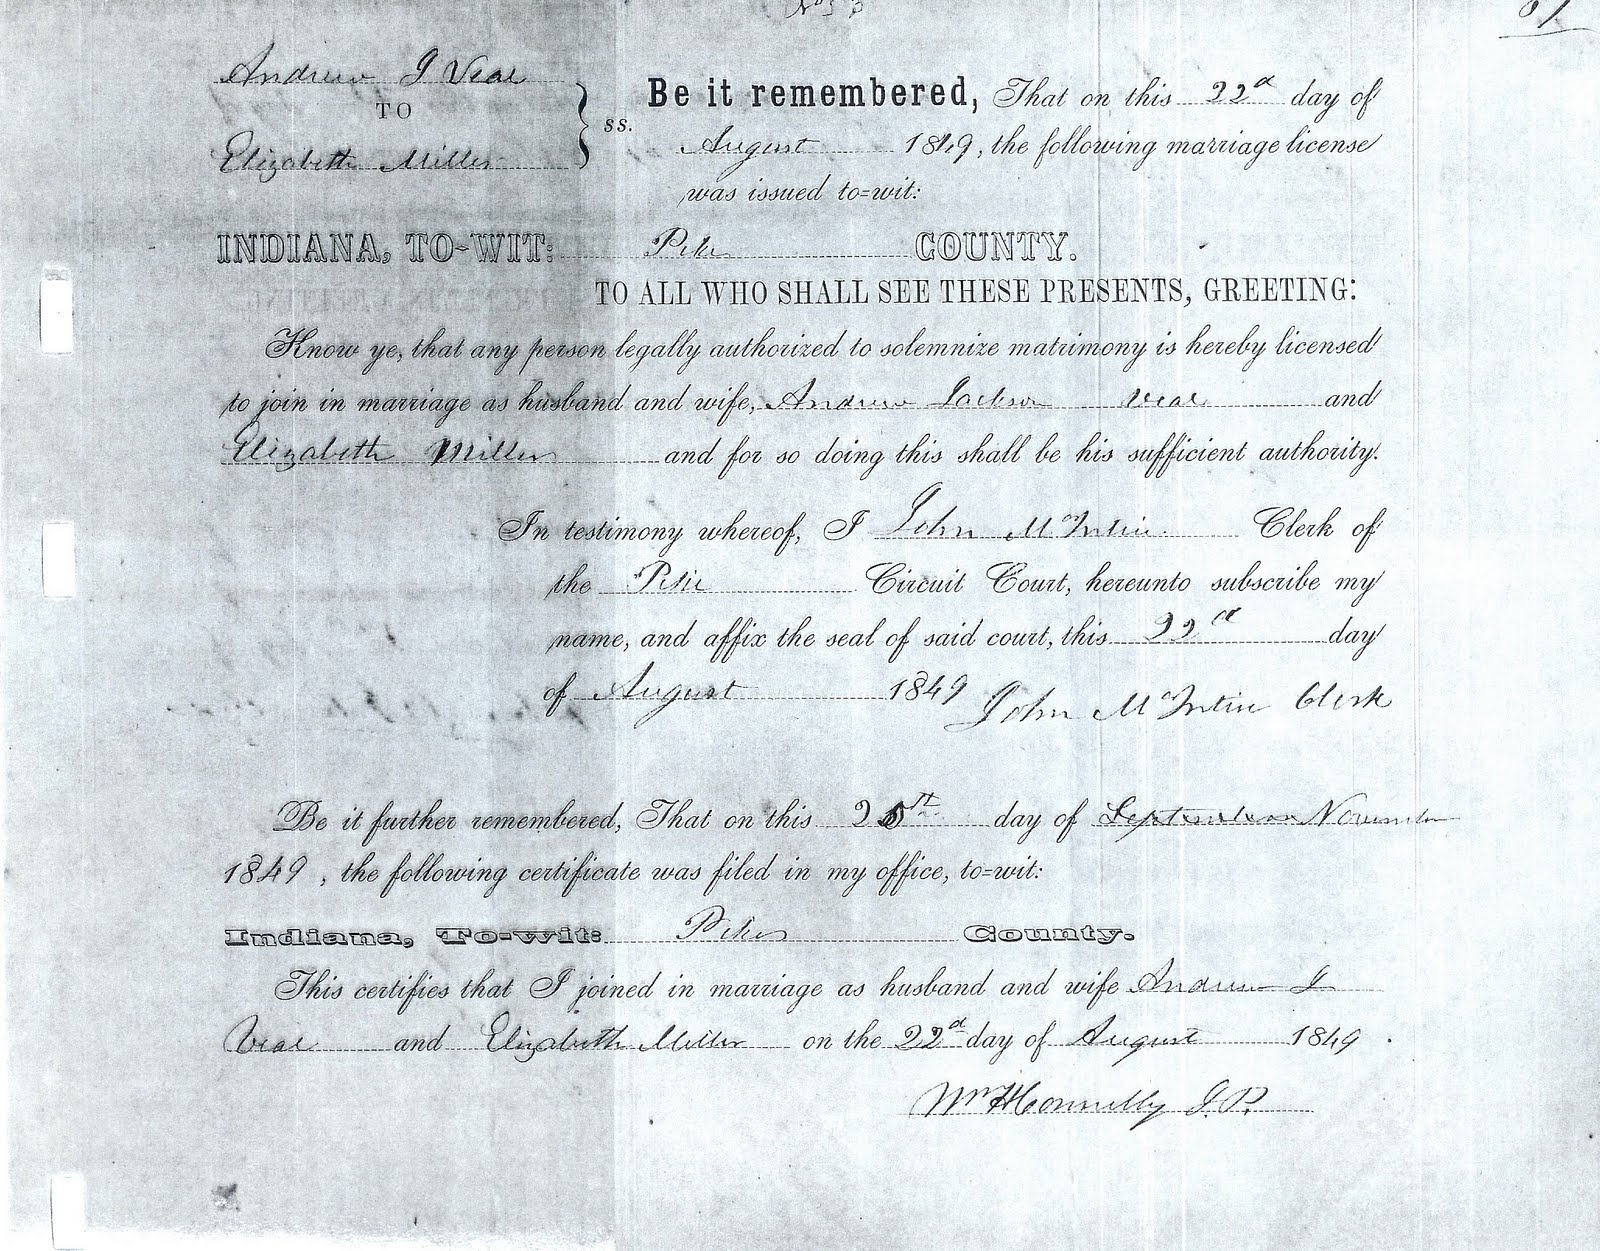 Andrew J Veal
TO
Elizabeth Miller
ss.
Be it remembered, That on this 22d day of
August 1849, the following marriage license
was issued to=wit:
INDIANA, TO-WIT: Pike COUNTY.
TO ALL WHO SHALL SEE THESE PRESENTS, GREETING:
Know ye, that any person legally authorized to solemnize matrimony is hereby licensed
to join in marriage as husband and wife, Andrew Jackson Veal and
Elizabeth Miller and for so doing this shall be his sufficient authority.
In testimony whereof, I John McIntire Clerk of
the Pike Circuit Court, hereunto subscribe my
name, and affix the seal of said court, this 22d day
of August 1849 John McIntire Clerk
Be it further remembered, That on this day of September November
1849, the following certificate was filed in my office, to=wit:
Indiana, To-wit: Pike County.
This certifies that I joined in marriage as husband and wife Andrew J
Veal and Elizabeth Miller on the 22d day of August 1849.
Wm H Connelly J.P.